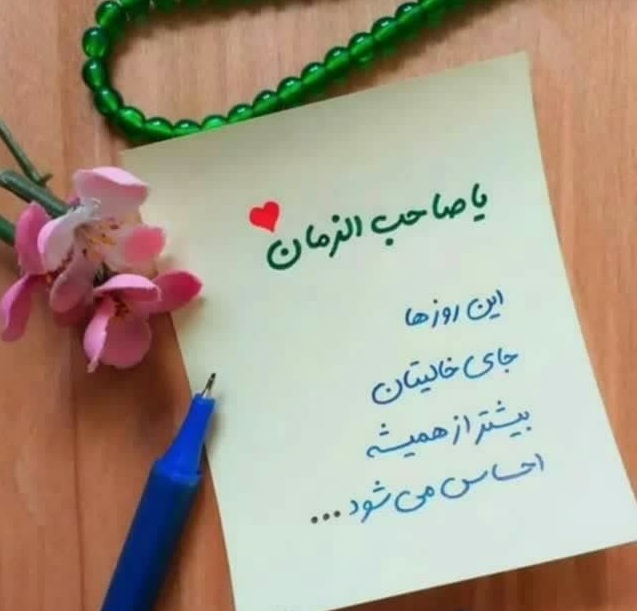 یا صاحب الزمان
این روزها
جای خالیتان
بیشتر از همیشه
احساس می شود ...